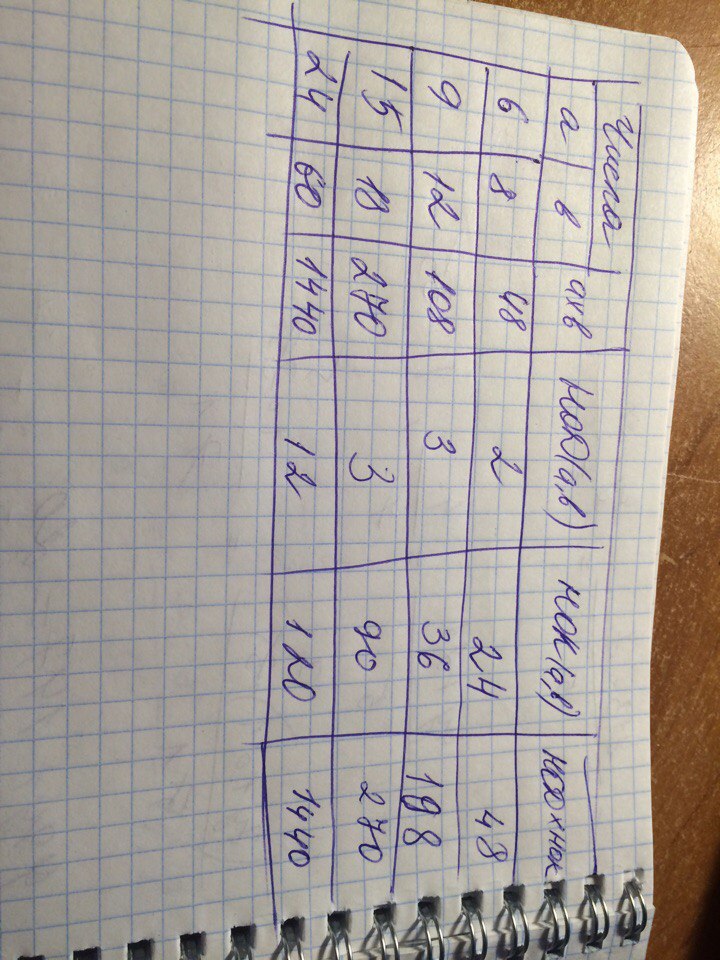 Числа
а в ахв НОД(а,в) НОК(а,в) НОДхНОК
6 8 48 2 24 48
9 12 108 3 36 108
15 18 270 3 90 270
24 60 1440 12 120 1440